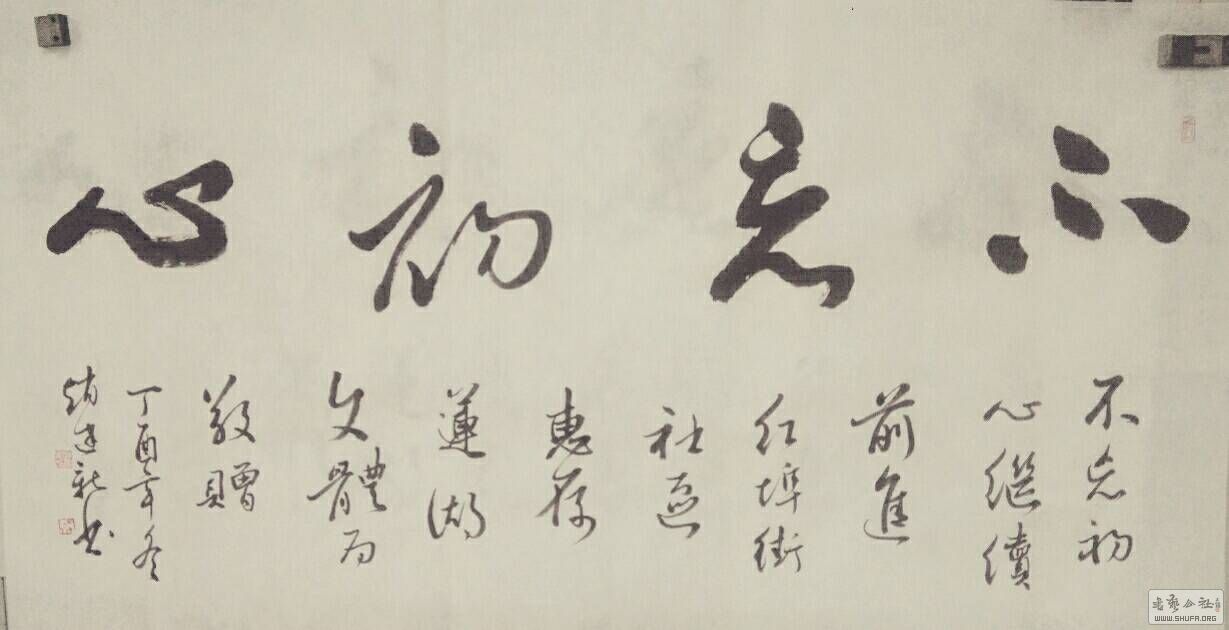 不忘初心
不忘初
心繼續
前進
红埠街
社區
惠存
蓮湖
文體局
敬贈
丁酉年冬
趙建新书
書藝公社
WWW.SHUFA.ORG